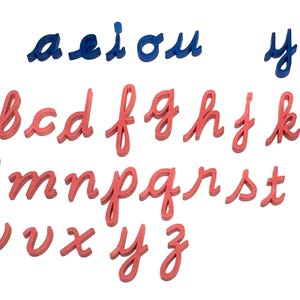 a e i o u y
b c d f g h j k
m n p q r s t
v x y z